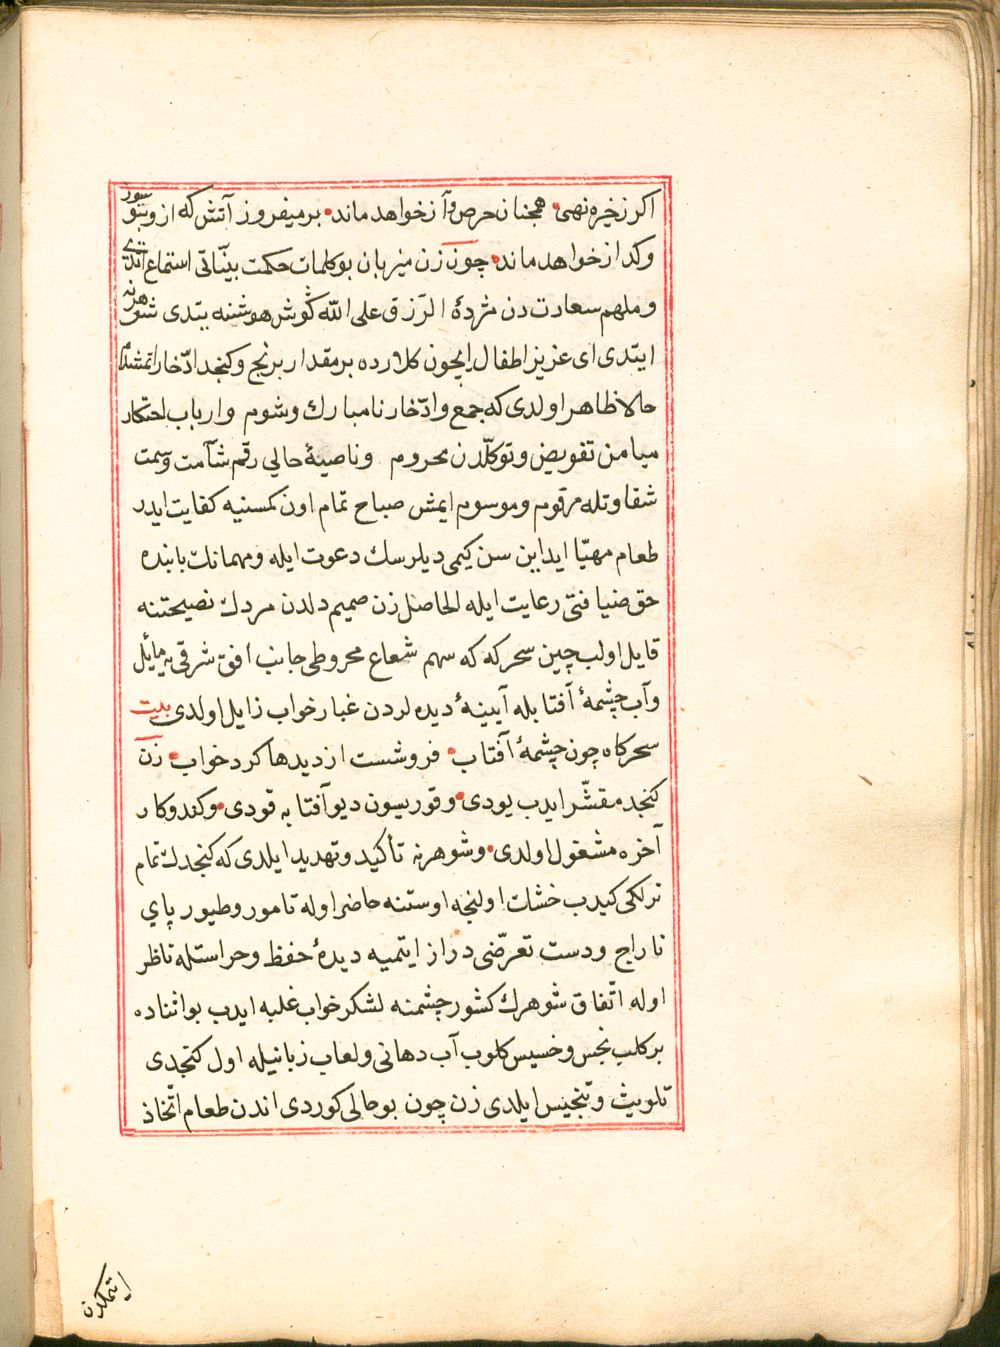 اکر زخیره نهی همچنان حرص و آز خواهد ماند برمیفروز آتش که ازو سوز
وکداز خواهد ماند چون زن میزبان بو کلمات حکمت بیّناتی استماع ایتدی
و ملهم سعادت دن مژدهٔ الرّزق علی الله کوش هوشنه یتدی شوهرینه
ایتدی ای عزیز اطفال ایچون کلارده بر مقدار برنج و کنجد ادّخار ایتمشدم
حالا ظاهر اولدی که جمع و ادّخار نامبارك و شوم و ارباب احتکار
میامن تفویض و توکّلدن محروم و ناصیهٔ حالی رقم شآمت و سمت
شقاوتله مرقوم و موسوم ایمش صباح تمام اون کمسنیه کفایت ایدر
طعام مهیّا ایداین سن کیمی دیلرسك دعوت ایله و مهمانك بابنده
حق ضیافتی رعایت ایله الحاصل زن صمیم دلدن مردك نصیحتنه
قایل اولب چین سحرکه که سهم شعاع مخروطی جانب افق شرقی یه مایٔل
و آب چشمهٔ آفتابله آیینهٔ دیده لردن غبار خواب زایل اولدی بیت
سحرکاه چون چشمهٔ آفتاب فروشست از دیدها کرد خواب زن
کنجد مقشّر ایدب یودی و قوریسون دیو آفتابه قودی و کندو کار
آخره مشغول اولدی و شوهرنه تأکید و تهدید ایلدی که کنجدك تمام
ترلکی کیدب خشك اولنجه اوستنه حاضر اوله تا مور و طیور پای
تاراج و دست تعرّضی دراز ایتمیه دیدهٔ حفظ و حراستله ناظر
اوله اتّفاق شوهرك کشور چشمنه لشکر خواب غلبه ایدب بو اثناده
بر کلب نجس و خسیس کلوب آب دهانی و لعاب زبانیله اول کنجدی
تلویث و تنجیس ایلدی زن چون بو حالی کوردی اندن طعام اتّخاذ
ایتمکدن